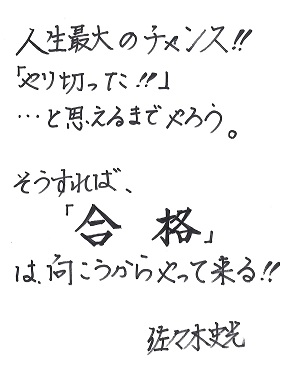 人生最大のチャンス!!
「やり切った!!」
…と思えるまでやろう。
そうすれば、
「合 格」
は、向こうからやって来る!!
佐々木史光